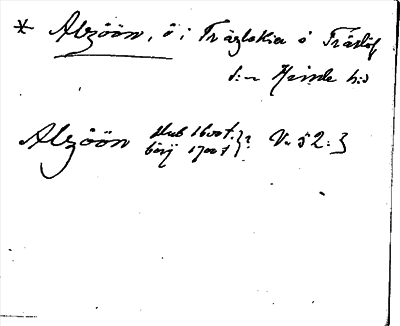 * Alzöön, ö i Träslokia i Träslöf
s:n Himle h:d
Alzöön slut 1600t. börj 1700t }? V. 52:3